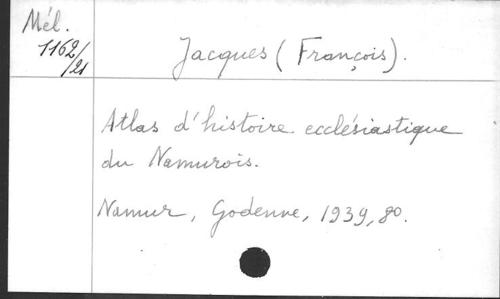 Mél.
1162/21
Jacques (François).
Atlas d'histoire ecclésiastique
du Namurois.
Namur, Godenne, 1939, 8o.